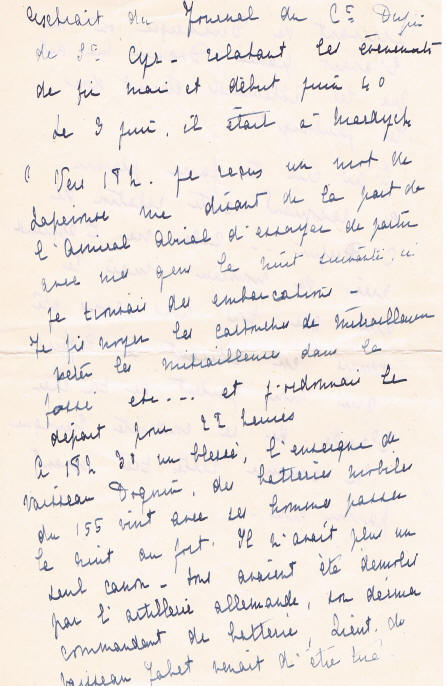 extrait du Journal du Ct Dupin
de St Cyr - relatant les évènements
de fin mai et début juin 40
Le 3 juin, il était à Mardyck
" Vers 18h. je reçus un mot de
Laperouse me disant de la part de
l'Amiral Abrial d'essayer de partir
avec mes gens la nuit suivante, si
je trouvais des embarcations -
Je fis noyer les cartouches de mitrailleuses
jeter les mitrailleuses dans le
fossé etc... et j'ordonnais le
départ pour 22 heures
A 18h 30 un blessé, l'enseigne de
Vaisseau Dognin, des batteries mobiles
du 155 vint avec ses hommes passer
la nuit au fort. Il n'avait plus un
seul canon - tous avaient été démolis
par l'artillerie allemande, son dernier
commandant de batterie, Lieut. de
Vaisseau Jabet venait d'être tué